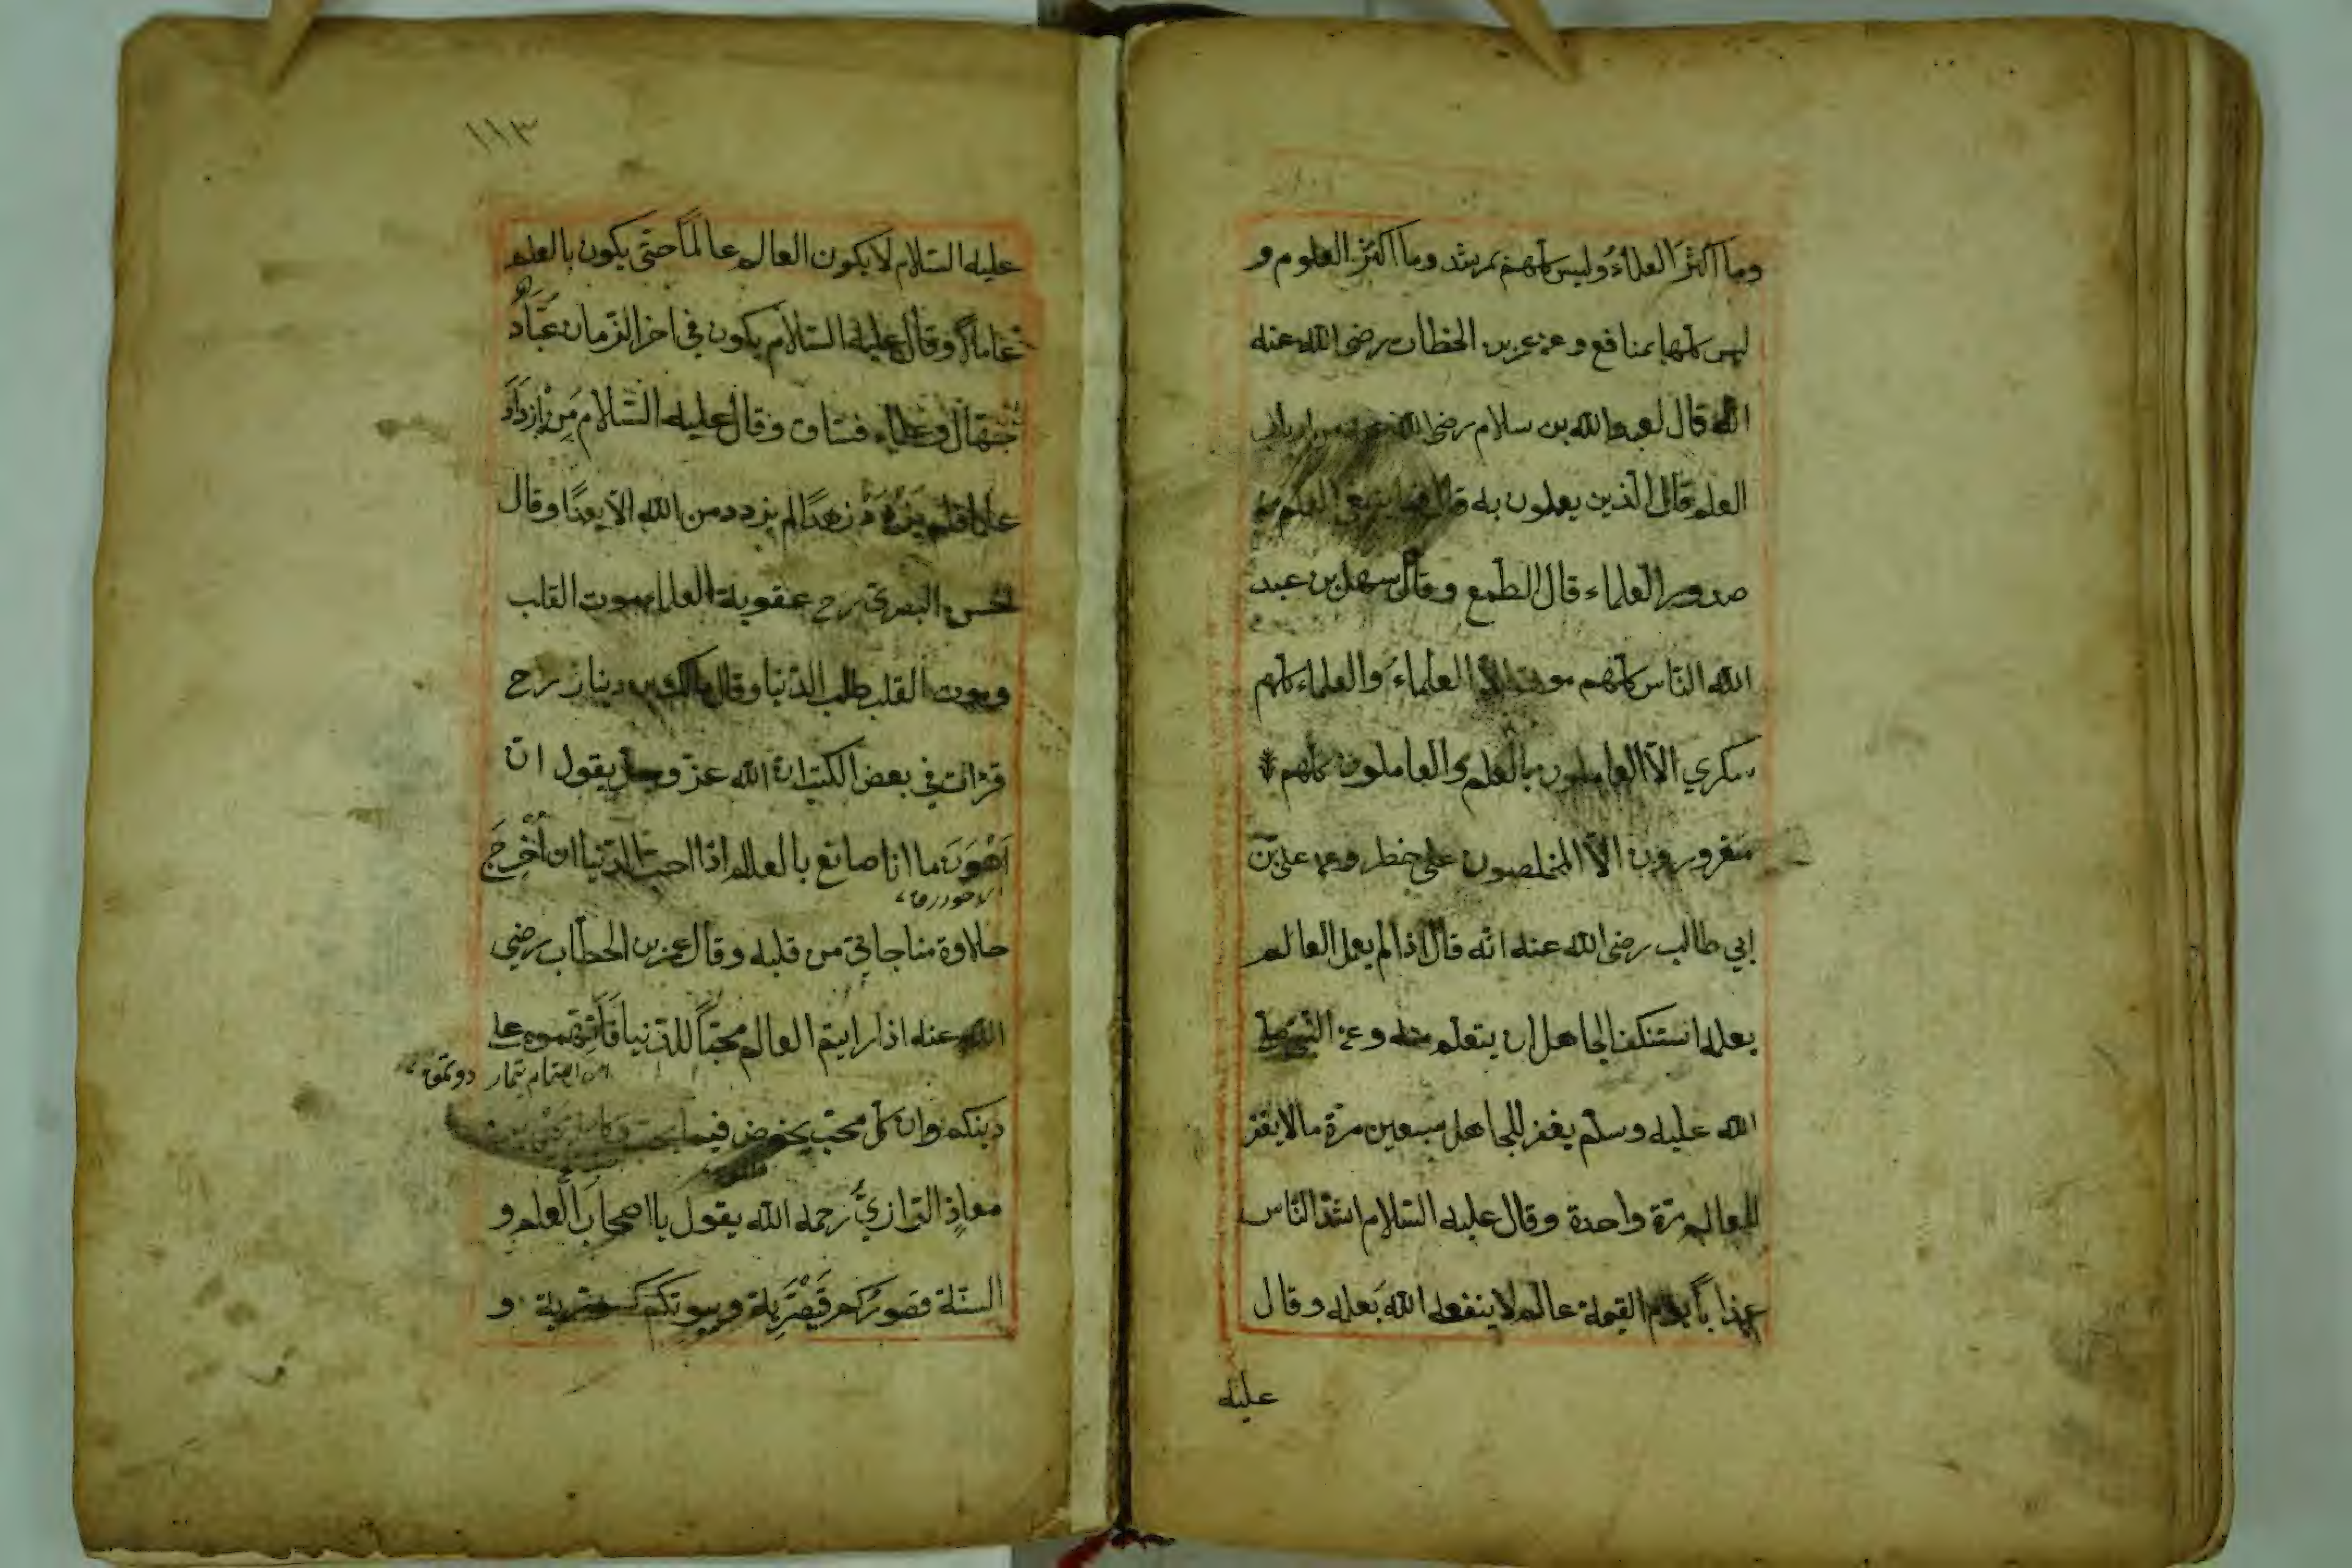 وما اكثر العلماء وليس كلهم بمرشد وما اكثر العلوم و
ليس كلها بمنافع وعن عمر بن الخطاب رضى الله عنه
الله قال لعبد الله بن سلام رضى الله عنه من ارباب
العلم قال الذين يعملون به قال فما ينفى العلم من
صدور العلماء قال الطمع وقال سهل بن عبد
الله الناس كلهم موتى الا العلماء والعلماء كلهم
سكري الا العاملون بالعلم والعاملون كلهم
مغرورون الا المخلصون على خطر وعن على بن
ابي طالب رضى الله عنه انه قال اذا لم يعمل العالم
بعلمه استنكف الجاهل ان يتعلم منه وعن النبي صلى
الله عليه وسلم يغفر للجاهل سبعين مرة ما لا يغفر
للعالم مرة واحدة وقال عليه السلام اشد الناس
عذاباً يوم القيمة عالم لا ينفعه الله بعلمه وقال
عليه
١١٣
عليه السلام لا يكون العالم عالماً حتى يكون بالعلم
عاملاً وقال عليه السلام يكون في اخر الزمان عباد
جهال وعلماء فساق وقال عليه السلام من ازداد
علما فلم يزدد زهداً لم يزدد من الله الا بعداً وقال
الحسن البصرى رح عقوبة العلماء موت القلب
وموت القلب طلب الدنيا وقال مالك بن دينار رح
قرات في بعض الكتب ان الله عز وجل يقول ان
اهون ما انا صانع بالعالم اذا احب الدنيا ان اخرج
حلاوة مناجاتي من قلبه وقال عمر بن الخطاب رضي
الله عنه اذا رايتم العالم محباً للدنيا فاتهموه على
دينكم وان كل محب يخوض فيما يحب وكان يحيى بن
معاذ الرازي رحمه الله يقول يا اصحاب العلم و
السنة قصوركم قيصرية وبيوتكم كسروية و